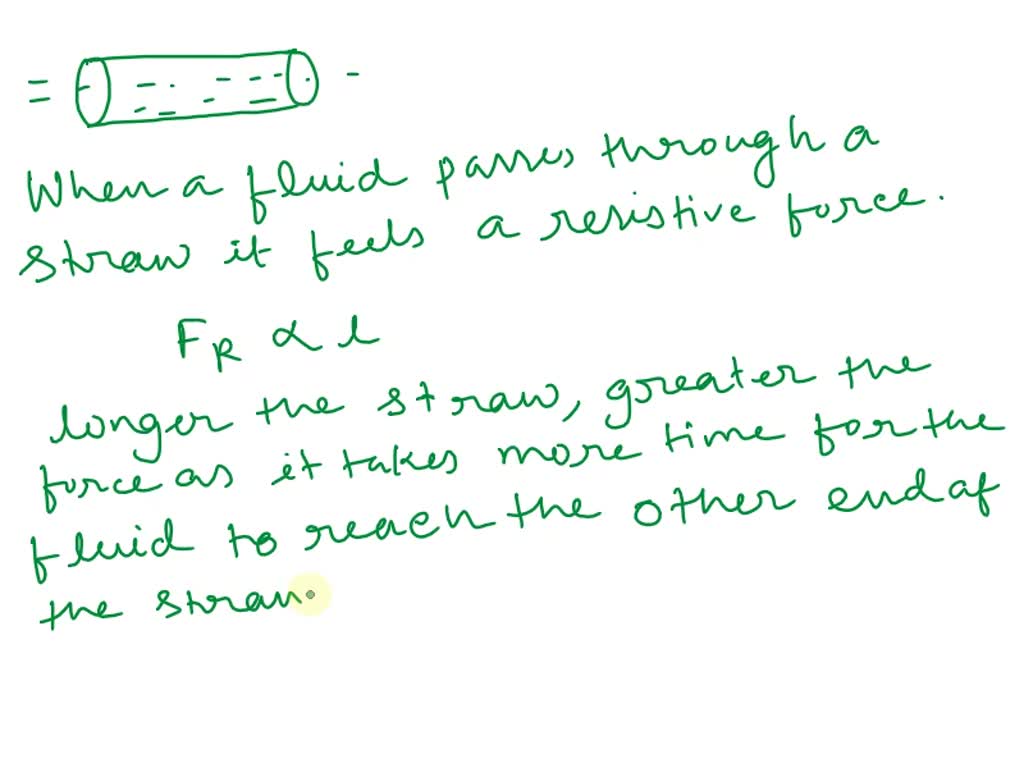 When a fluid passes through a
straw it feels a resistive force.
FR ∝ l
longer the straw, greater the
force as it takes more time for the
fluid to reach the other end of
the straw